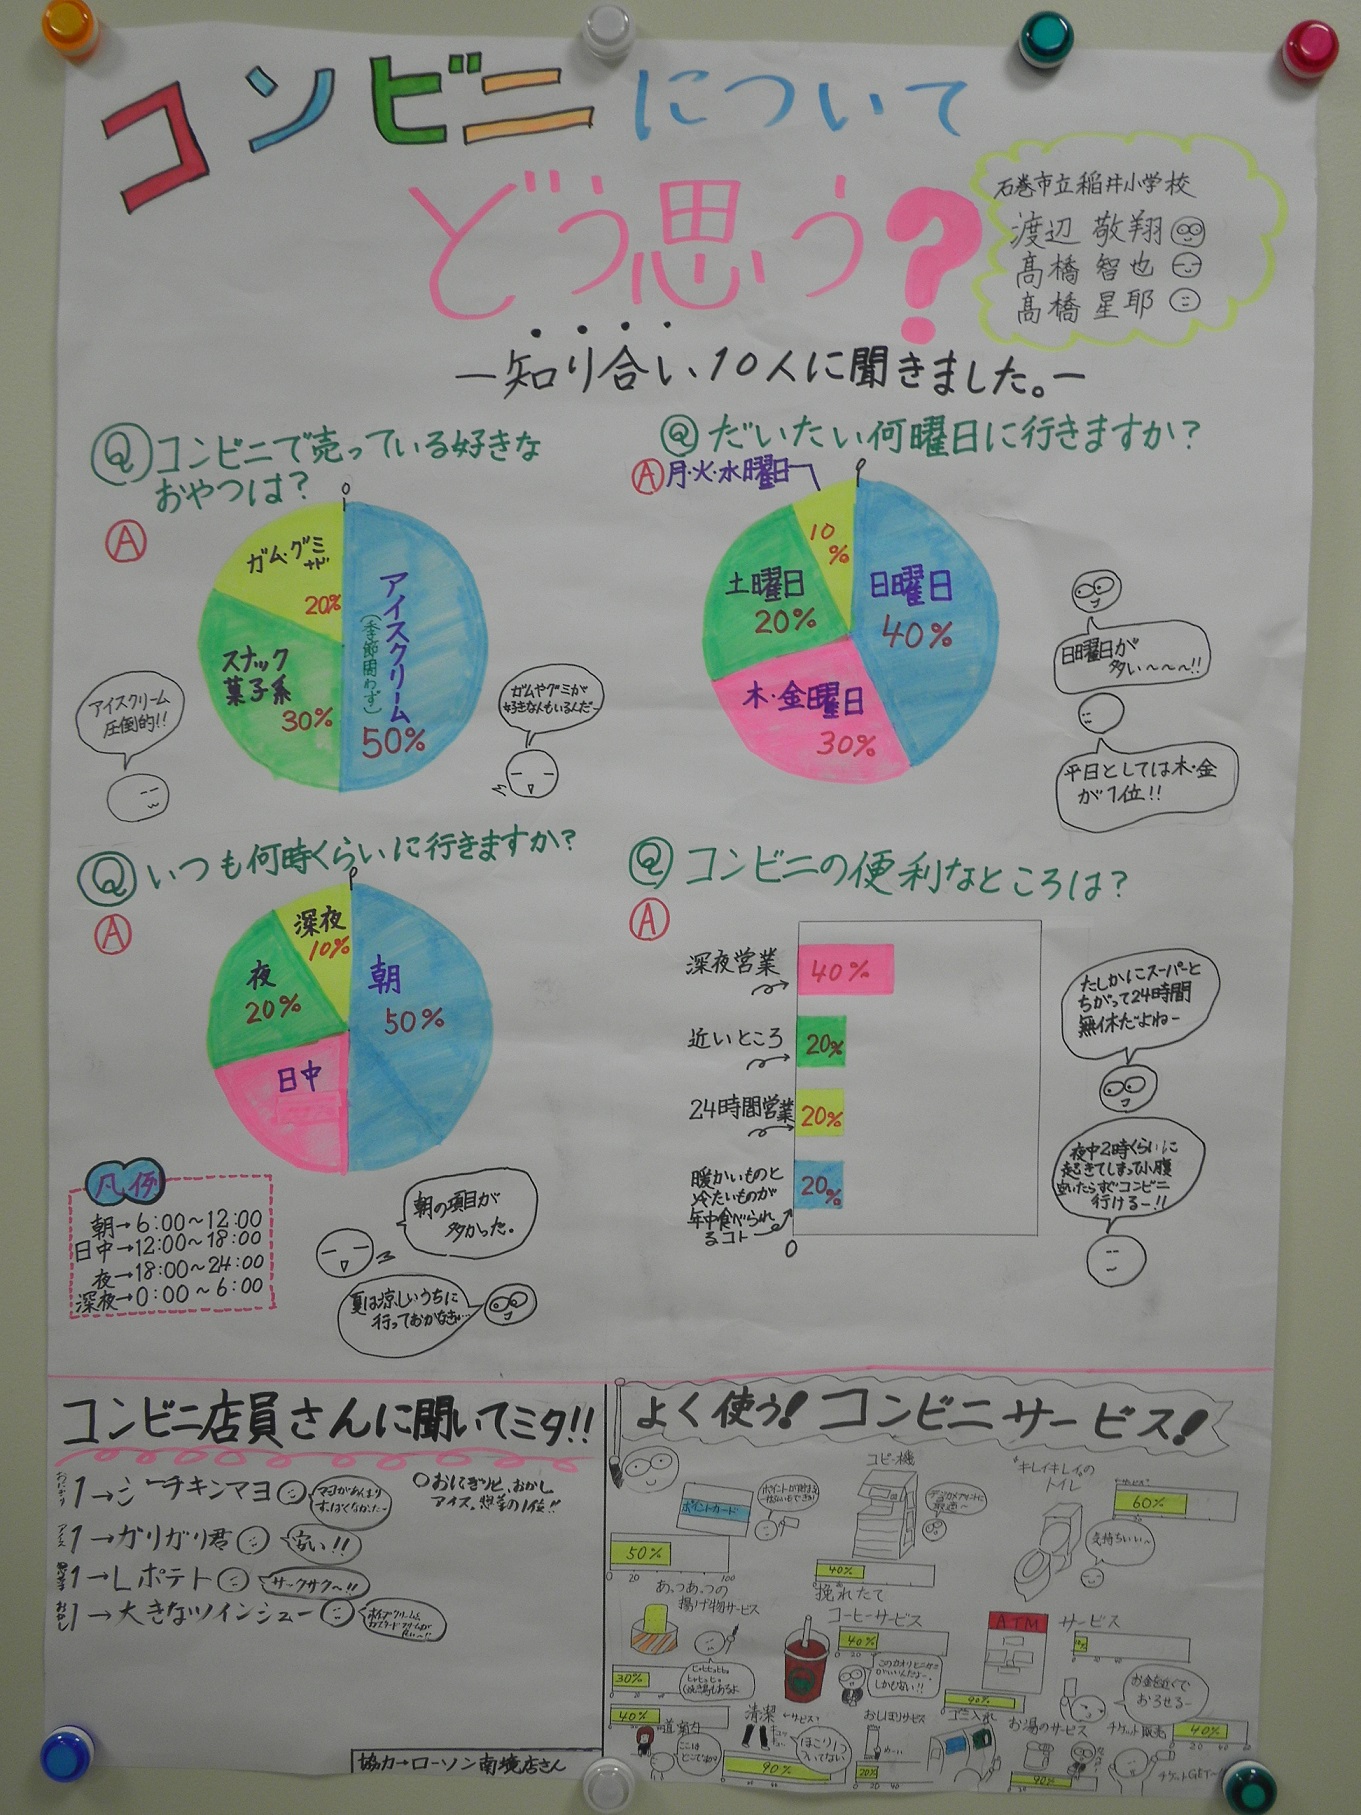 コンビニについて
どう思う?
石巻市立稲井小学校
渡辺 敬翔
髙橋 智也
髙橋 星耶
―知り合い10人に聞きました。―
Q コンビニで売っている好きな
おやつは?
A
0
ガム・グミ
など
20%
アイスクリーム
(季節問わず)
50%
スナック
菓子系
30%
アイスクリーム
圧倒的!!
ガムやグミが
好きな人もいるんだー
Q だいたい何曜日に行きますか?
A 月・火・水曜日
0
10
%
日曜日
40%
土曜日
20%
木・金曜日
30%
日曜日が
多い〜〜〜!!
平日としては木・金
が1位!!
Q いつも何時くらいに行きますか?
A
0
深夜
10%
朝
50%
夜
20%
日中
凡例
朝→6:00〜12:00
日中→12:00〜18:00
夜→18:00〜24:00
深夜→0:00〜6:00
朝の項目が
多かった。
夏は涼しいうちに
行っておかなきゃ…
Q コンビニの便利なところは?
A
深夜営業
40%
近いところ
20%
24時間営業
20%
暖かいものと
冷たいものが
年中食べられ
るコト
20%
0
たしかにスーパーと
ちがって24時間
無休だよねー
夜中2時くらいに
起きてしまって小腹
空いたらすぐコンビニ
行けるー!!
コンビニ店員さんに聞いてミタ!!
おにぎり 1→シーチキンマヨ
○おにぎりと、おかし
アイス、惣菜の1位!!
アイス 1→ガリガリ君
安い!!
1→Lポテト
サックサク〜!!
おかし 1→大きなツインシュー
協力→ローソン南境店さん
よく使う!コンビニサービス!
ポイントカード
50%
0 20 100
コピー機
40%
キレイキレイなの
トイレ
サービス
60%
気持ちいい〜
あっつあっつの
揚げ物サービス
30%
挽れたて
コーヒーサービス
40%
0 20 40
ATM
サービス
お金を近くで
おろせるー
40%
道案内
清潔
サービス
ほこり1つ
ついてない
90%
おしぼりサービス
20%
0 20 40
ゴミ入れ
90%
お湯のサービス
90%
チケット販売
40%
20 40 60
チケットGETー